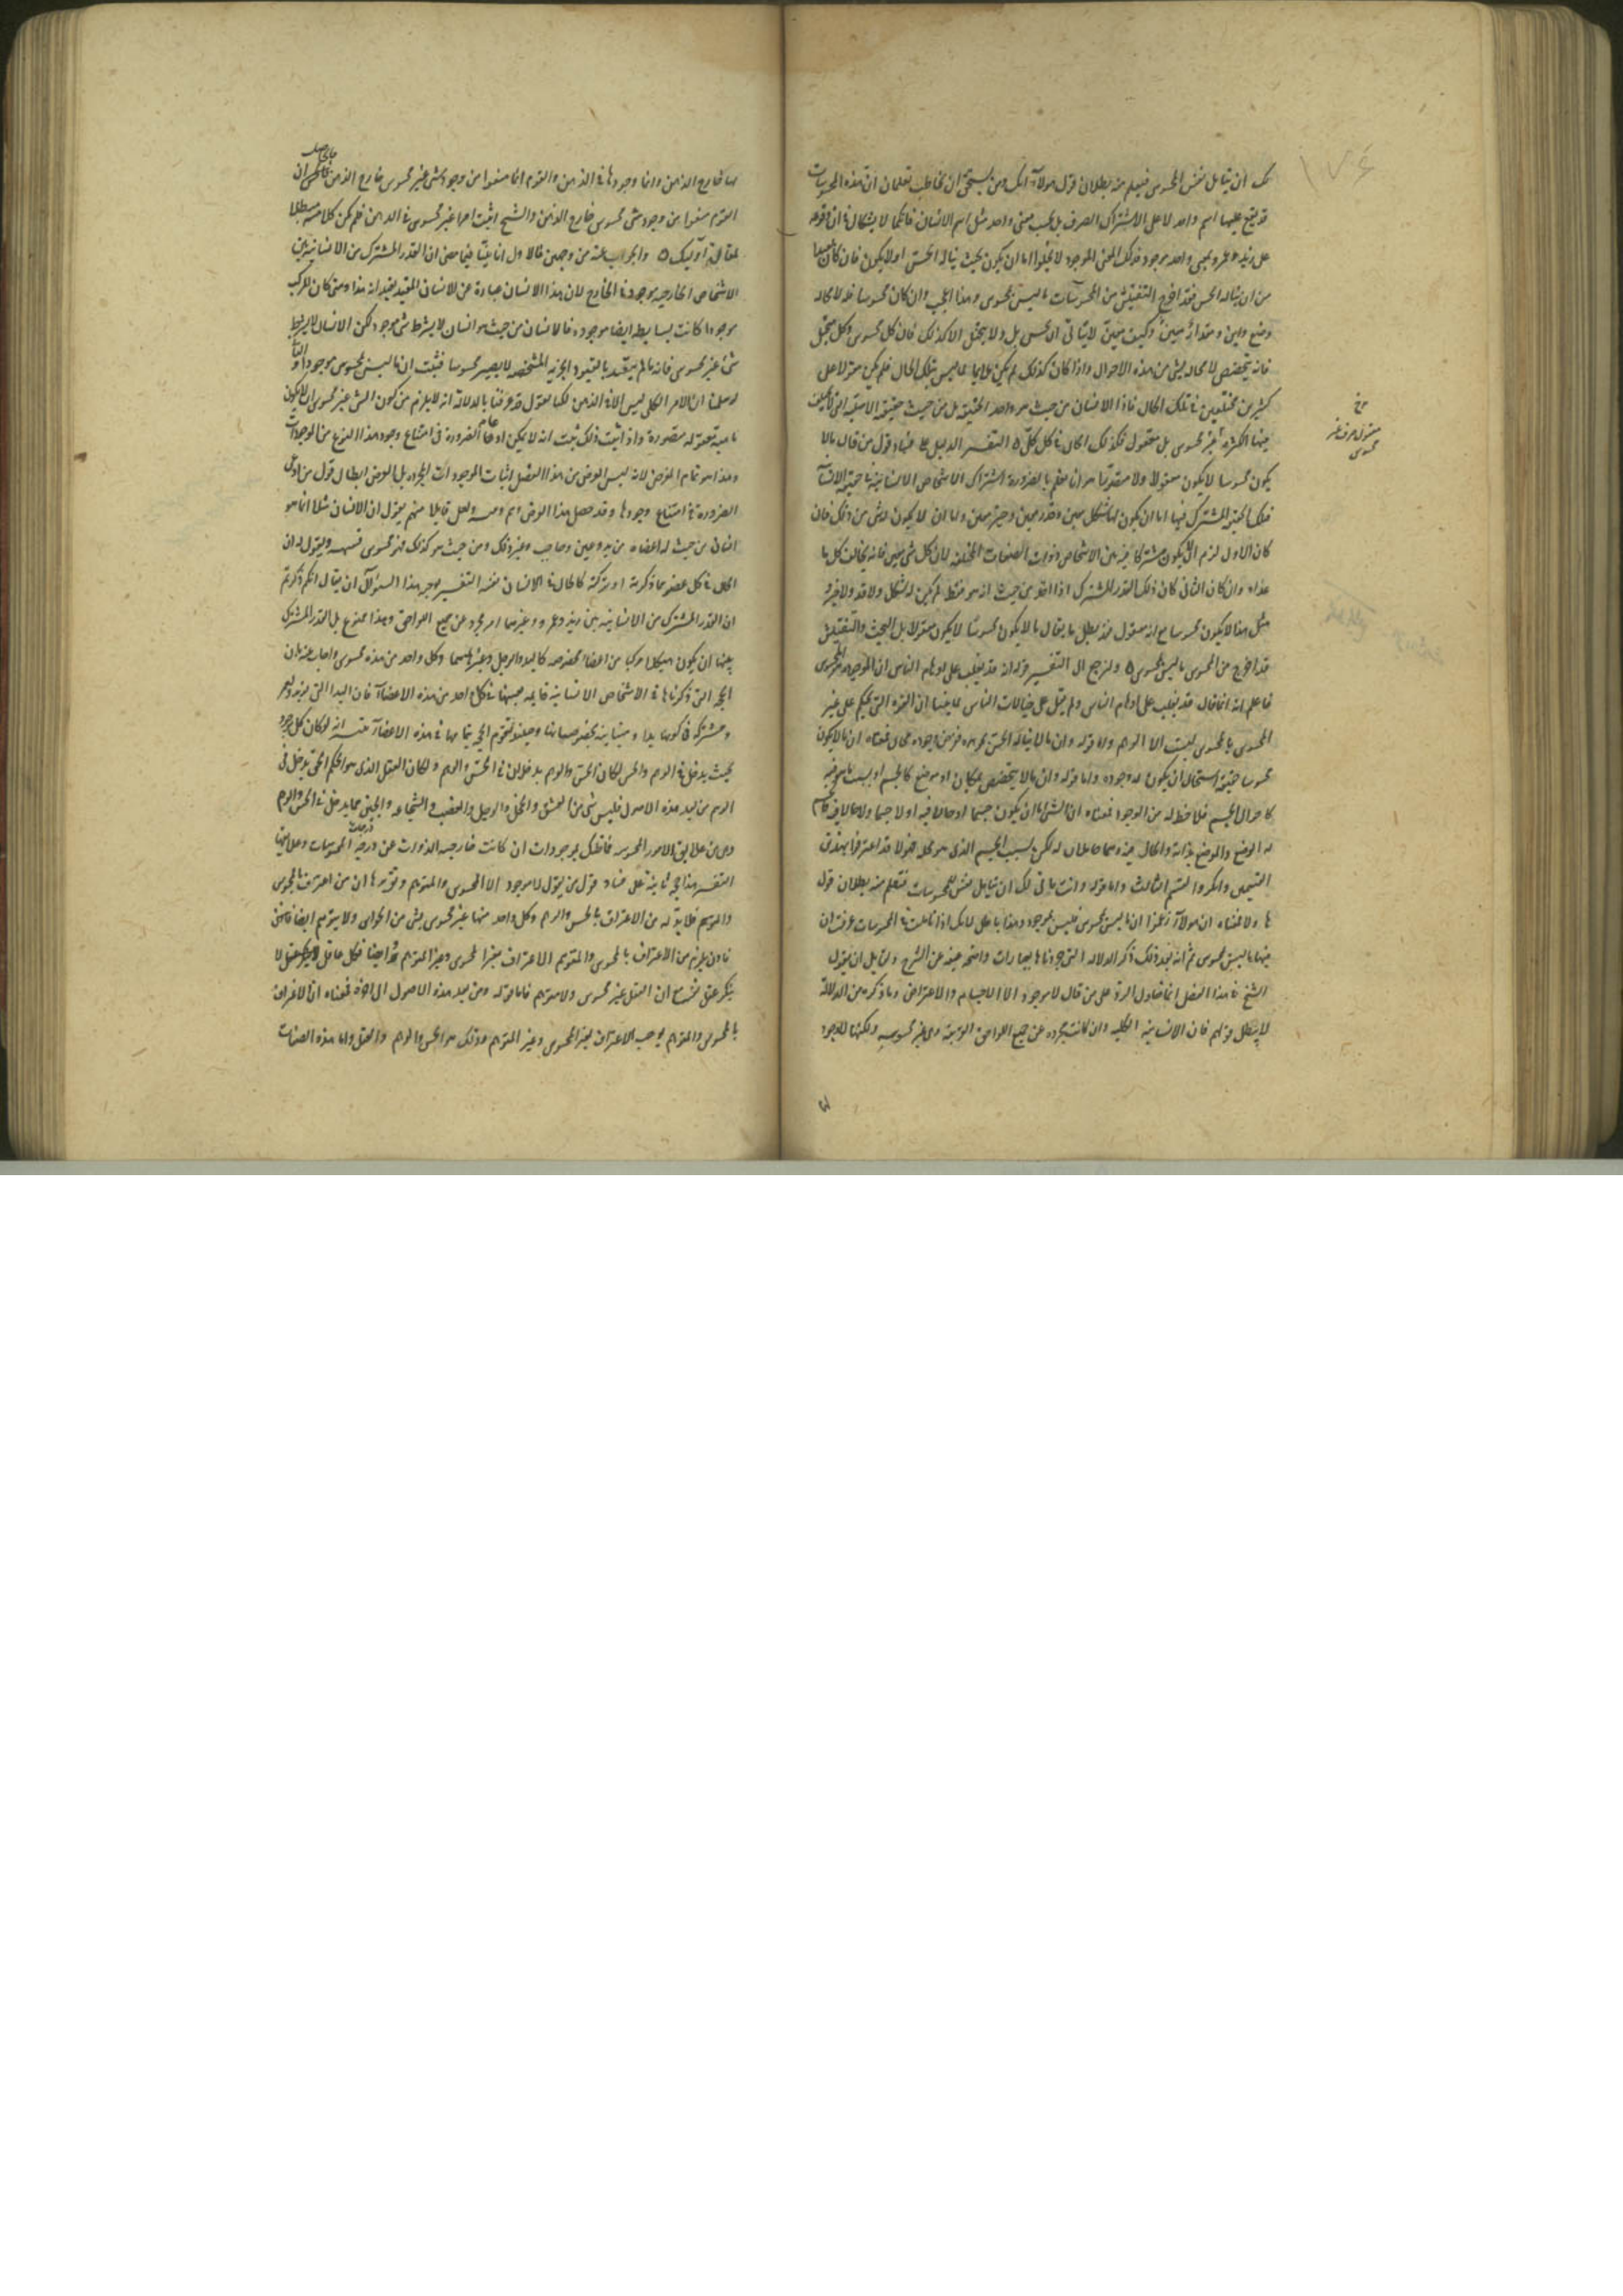 لك ان يتأمل نفس المحسوس فيعلم منه بطلان قول هؤلاء لانك ومن يستحق ان يخاطب تعلمان ان هذه المحسوسات
قد يقع عليها اسم واحد لا على الاشتراك الصرف بل بحسب معنى واحد مثل اسم الانسان فانكما لا تشكان في ان وقوعه
على زيد وعمرو بمعنى واحد موجود فذلك المعنى الموجود لا يخلو اما ان يكون بحيث يناله الحس او لا يكون فان كان بعيدا
من ان يناله الحس فقد اخرج التفتيش من المحسوسات ما ليس بمحسوس وهذا اعجب وان كان محسوسا فله لا محالة
وضع واين ومقدار معين وكيف معين لا يتأتى ان يحس بل ولا يتخيل الا كذلك فان كل محسوس وكل متخيل
فانه يتخصص لا محالة بشئ من هذه الاحوال واذا كان كذلك لم يكن ملايما لما ليس بتلك الحال فلم يكن مقولا على
كثيرين مختلفين في تلك الحال فاذا الانسان من حيث هو واحد الحقيقة بل من حيث حقيقته الاصلية التي لا تختلف
فيها الكثرة غير محسوس بل معقول وكذلك الحال في كل كلي ٥ التفسير الدليل على فساد قول من قال ما لا
يكون محسوسا لا يكون معقولا ولا متصورا هو انا نعلم بالضرورة اشتراك الاشخاص الانسانية في حقيقة الانسان
فتلك الحقيقة المشترك فيها اما ان يكون لها شكل معين وقدر معين وحيز معين واما ان لا يكون لها شئ من ذلك فان
كان الاول لزم ان لا يكون مشتركا فيه بين الاشخاص ذوات الصفات المختلفة لان كل شئ معين فانه يخالف كل ما
عداه وان كان الثاني كان ذلك القدر المشترك اذا اخذ من حيث انه هو فقط لم يكن له شكل ولا قدر ولا حيز و
مثل هذا لا يكون محسوسا مع انه معقول فقد بطل ما يقال ما لا يكون محسوسا لا يكون معقولا بل البحث والتفتيش
قد اخرج من المحسوس ما ليس بمحسوس ٥ ولنرجع الى التفسير قوله انه قد يغلب على اوهام الناس ان الموجود هو المحسوس
فاعلم انه انما قال قد يغلب على اوهام الناس ولم يقل على خيالات الناس لما بينا ان القوة التي تحكم على غير
المحسوس بالمحسوس ليست الا الوهم واما قوله وان ما لا يناله الحس بجوهره ففرض وجوده محال فمعناه ان ما لا يكون
محسوسا حقيقة استحال ان يكون له وجود واما قوله وان ما لا يتخصص بمكان او وضع كالجسم او بسبب ما هو فيه
كاحوال الجسم فلا حظ له من الوجود فمعناه ان الشئ اما ان يكون جسما او حالا فيه او لا جسما ولا حالا فيه فالجسم
له الوضع والموضع بذاته والحال فيه وهما حاصلان له لكن بسبب الجسم الذي هو محله فهؤلاء قد اعترفوا بهذين
القسمين وانكروا القسم الثالث واما قوله وانت يتأتى لك ان تتأمل نفس المحسوسات فتعلم منه بطلان قول
هؤلاء فمعناه ان هؤلاء زعموا ان ما ليس بمحسوس فليس بموجود وهذا باطل لانك اذا تأملت في المحسوسات عرفت ان
فيها ما ليس بمحسوس ثم انه بعد ذلك ذكر الدلالة التي جردناها بعبارات واضحة غنية عن الشرح ولقائل ان يقول
الشيخ في هذا الفصل انما يحاول الرد على من قال لا موجود الا الاجسام والاعراض وما ذكره من الدلالة
لا يبطل قولهم فان الانسانية الكلية وان كانت مجردة عن جميع اللواحق الغريبة وهي غير محسوسة ولكنها لا وجود
١٧٤
لها خارج الذهن وانما وجودها في الذهن والقوم انما منعوا من وجود شئ غير محسوس خارج الذهن فالحاصل ان
القوم منعوا من وجود شئ غير محسوس خارج الذهن والشيخ اثبت امرا غير محسوس في الذهن فلم يكن كلامه مبطلا
لمقالة اولئك ٥ والجواب عنه من وجهين فالاول انا بينا فيما مضى ان القدر المشترك من الانسانية بين
الاشخاص الخارجية موجود في الخارج لان هذا الانسان عبارة عن الانسان المقيد بقيد انه هذا ومتى كان المركب
موجودا كانت بسايطه ايضا موجودة فالانسان من حيث هو انسان لا بشرط شئ موجود لكن الانسان لا بشرط
شئ غير محسوس فانه ما لم يتقيد بالقيود الجزئية المشخصة لا يصير محسوسا فثبت ان ما ليس بمحسوس موجود والثاني
لو سلمنا ان الامر الكلي ليس الا في الذهن لكنا نقول قد عرفنا بالدلالة انه لا يلزم من كون الشئ غير محسوس ان لا يكون
ماهية معقولة متصورة واذا ثبت ذلك ثبت انه لا يمكن ادعاء الضرورة في امتناع وجود هذا النوع من الموجودات
وهذا هو تمام الغرض لانه ليس الغرض من هذا الفصل اثبات الموجودات المجردة بل الغرض ابطال قول من ادعى
الضرورة في امتناع وجودها وقد حصل هذا الغرض وهم وتنبيه ولعل قايلا منهم يقول ان الانسان مثلا انما هو
انسان من حيث له اعضاء من يد وعين وحاجب وغير ذلك ومن حيث هو كذلك فهو محسوس فننبهه ونقول له ان
الحال في كل عضو مما ذكرته او تركته كالحال في الانسان نفسه التفسير توجيه هذا السؤال ان يقال انكم ذكرتم
ان القدر المشترك من الانسانية بين زيد وعمرو وغيرهما امر مجرد عن جميع اللواحق وهذا ممنوع بل القدر المشترك
بينهما ان يكون هيكلا مركبا من اعضاء مخصوصة كاليد والرجل وغيرهما وكل واحد من هذه محسوس واجاب عنه بان
الحجة التي ذكرناها في الاشخاص الانسانية قايمة بعينها في كل واحد من هذه الاعضاء فان اليد التي لزيد ولعمرو
مشتركة في كونها يدا ومتباينة بخصوصياتها وحينئذ تقوم الحجة بتمامها في هذه الاعضاء تنبيه انه لو كان كل موجود
بحيث يدخل في الوهم والحس لكان الحس والوهم يدخلان في الحس والوهم ولكان العقل الذي هو الحكم الحق يدخل في
الوهم ومن بعد هذه الاصول فليس شئ من العشق والخجل والوجل والغضب والشجاعة والجبن مما يدخل في الحس والوهم
وهي من علايق الامور المحسوسة فما ظنك بموجودات ان كانت خارجة الذوات عن درجة المحسوسات وعلايقها
التفسير هذا حجة ثانية على فساد قول من يقول لا موجود الا المحسوس والمتوهم وتقريرها ان من اعترف بالمحسوس
والمتوهم فلا بد له من الاعتراف بالحس والوهم وكل واحد منهما غير محسوس بشئ من الحواس ولا يتوهم ايضا فاذن
يلزم من الاعتراف بالمحسوس والمتوهم الاعتراف بغير المحسوس وغير المتوهم وايضا فكل عاقل لا
ينكر عقل نفسه مع ان العقل غير محسوس ولا متوهم فاما قوله ومن بعد هذه الاصول الى آخره فمعناه ان الاعتراف
بالمحسوس والمتوهم يوجب الاعتراف بغير المحسوس وغير المتوهم وذلك هو الحس والوهم والعقل واما هذه الصفات